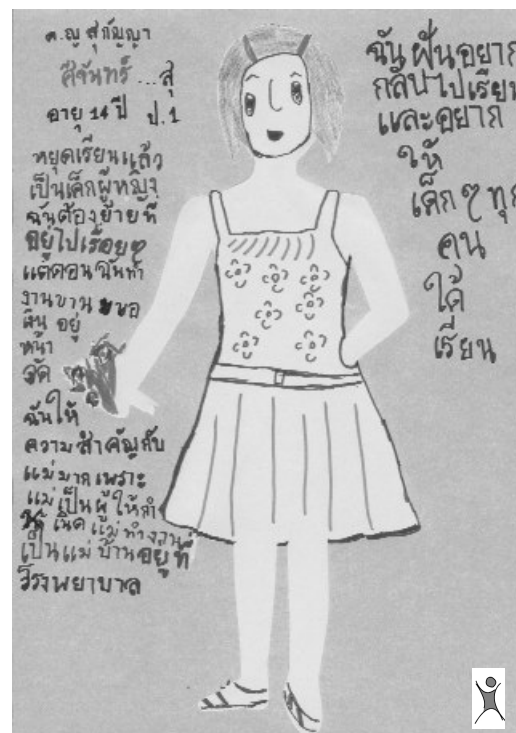 ด.ญ สุกัญญา
ศิจันทร์ ... สุ
อายุ 14 ปี ป.1
หยุดเรียนแล้ว
เป็นเด็กผู้หญิง
ฉันต้องย้ายที่
อยู่ไปเรื่อยๆ
แต่ตอนฉันทำ
งานขาน ขอ
เงิน อยู่
หน้า
วัด
ฉันให้
ความสำคัญกับ
แม่มากเพราะ
แม่เป็นผู้ให้กำ
เนิด แม่ทำงาน
เป็นแม่บ้านอยู่ที่
โรงพยาบาล
ฉันฝันอยาก
กลับไปเรียน
และอยาก
ให้
เด็กๆทุก
คน
ได้
เรียน